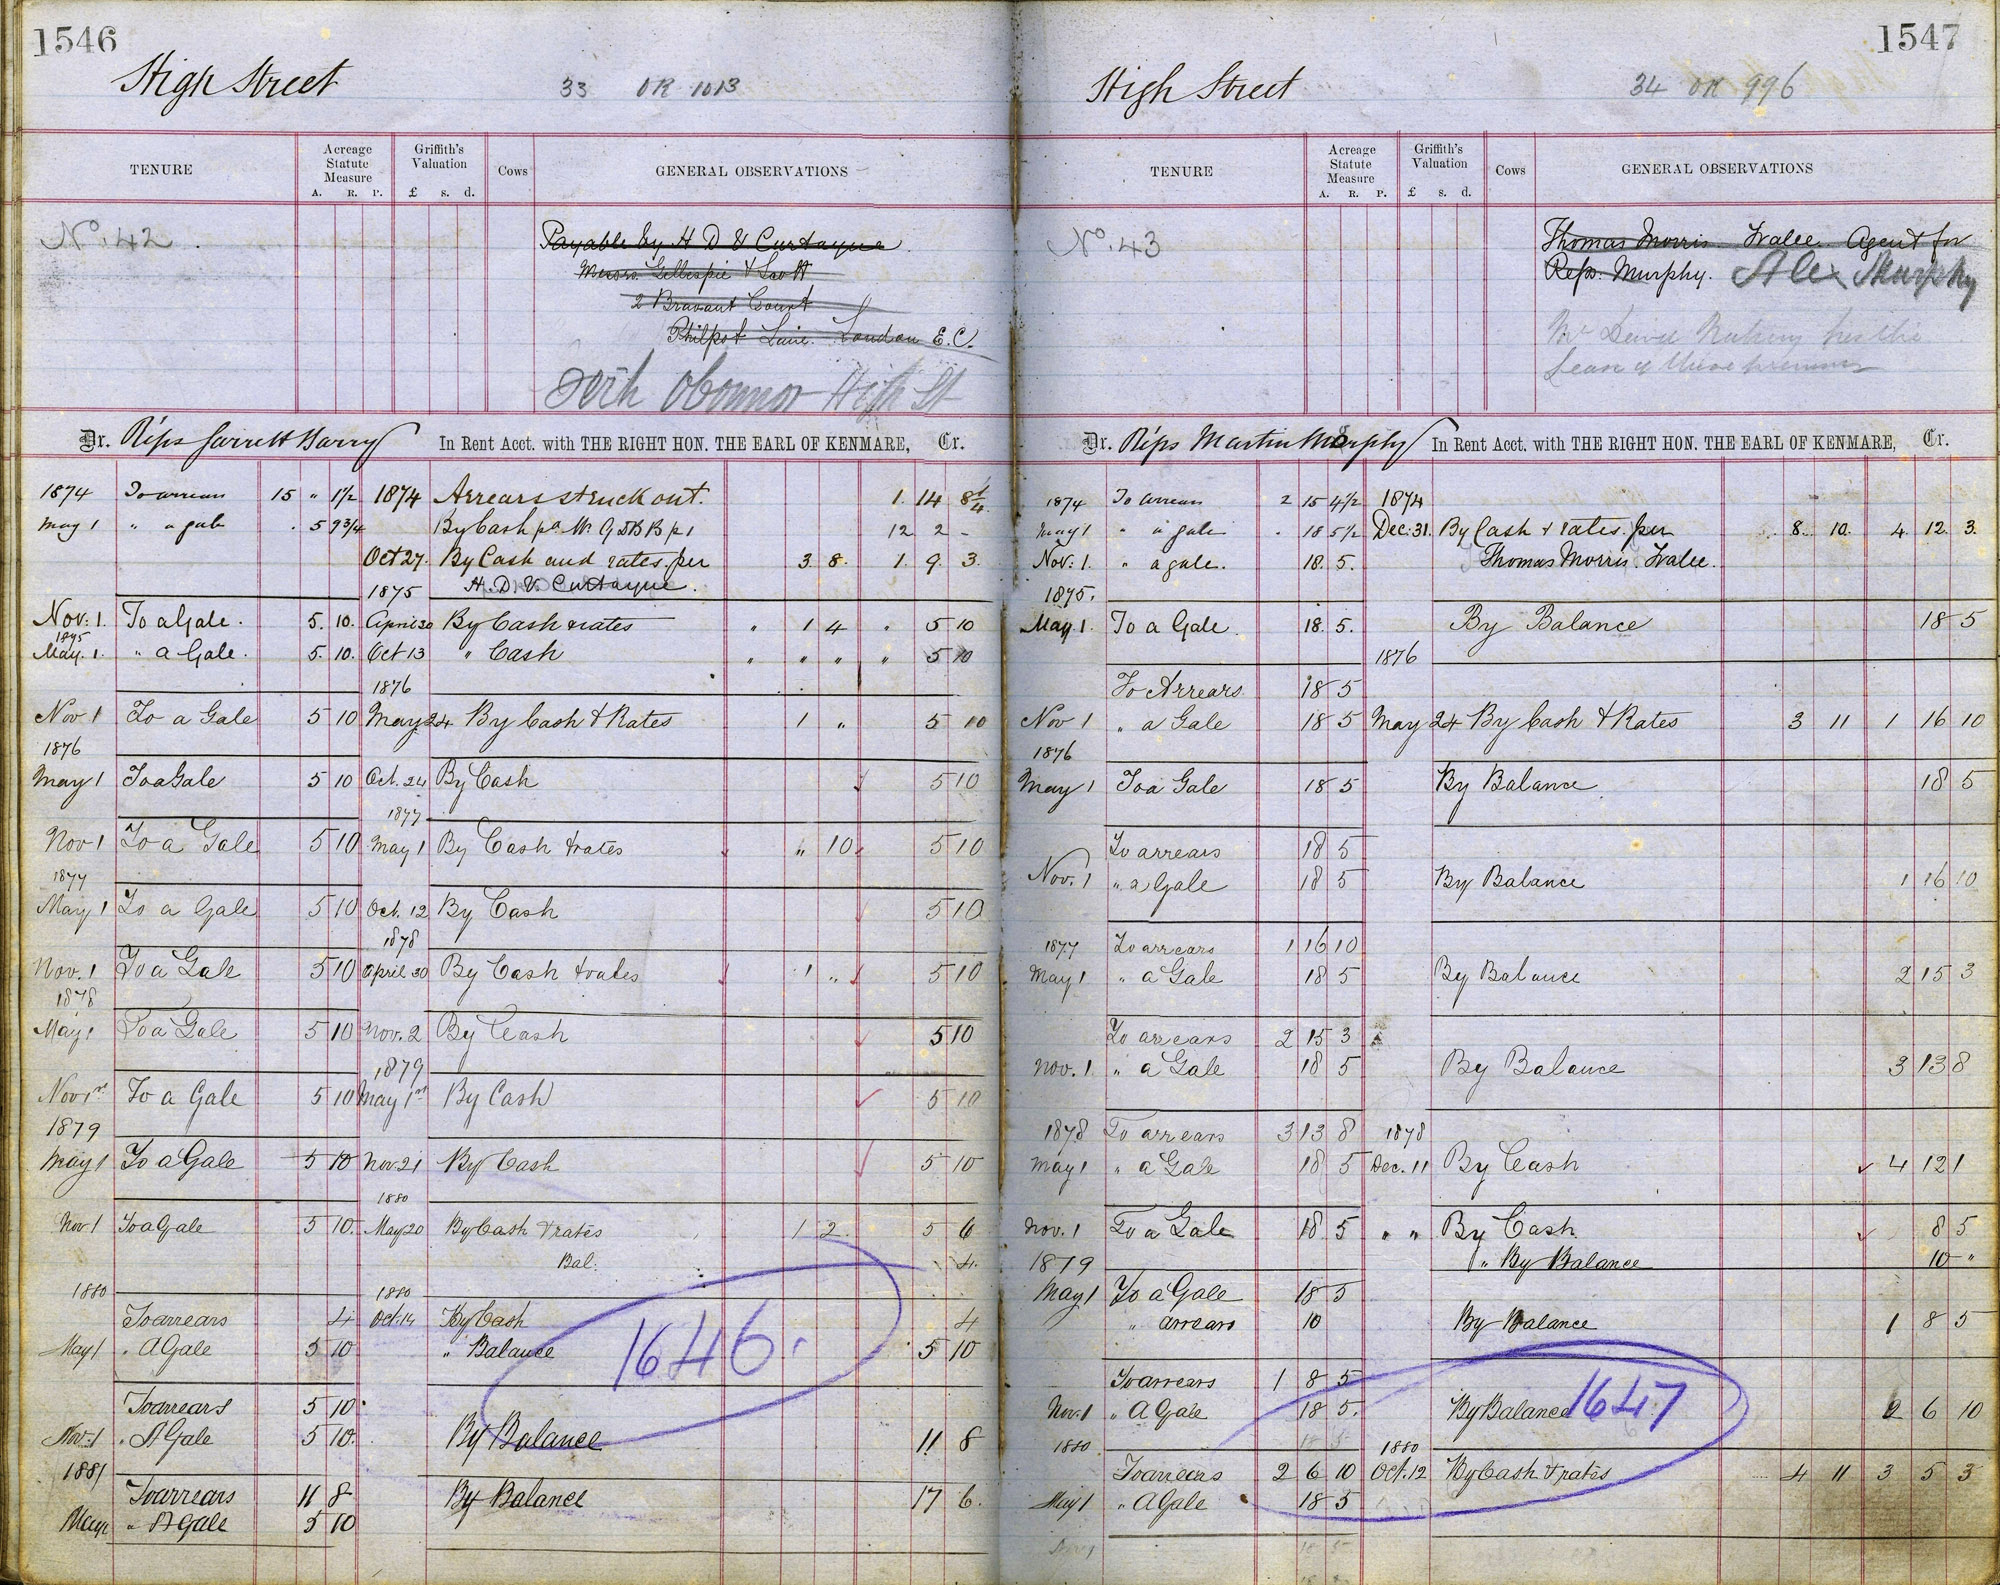 1546
High Street
33 OR 1013
TENURE
Acreage Statute Measure
A. R. P.
Griffith's Valuation
£ s. d.
Cows
GENERAL OBSERVATIONS
No. 42.
Payable by H D V Curtayne
Messrs. Gillespie & Scott
2 Bravant Court
Philpot Lane. London E.C.
OConnor High St
Dr. Reps Garrett Barry In Rent Acct. with THE RIGHT HON. THE EARL OF KENMARE, Cr.
1874 To arrears 15 " 1½ 1874 Arrears struck out. 1. 14 8¼
May 1 " a gale . 5 9¾ By Cash 12 2 -
Oct 27. By Cash and rates. per 3. 8. 1. 9. 3.
1875 H. D. V. Curtayne.
Nov: 1. To a Gale. 5. 10. April 30 By Cash & rates " 1 4 " 5 10
1875
May. 1. " a Gale. 5. 10. Oct 13 " Cash " " " " 5 10
1876
Nov 1 To a Gale 5 10 May 24 By Cash & Rates 1 " 5 10
1876
May 1 To a Gale 5 10 Oct. 24 By Cash 5 10
1877
Nov 1 To a Gale 5 10 May 1 By Cash & rates " 10 5 10
1877
May 1 To a Gale 5 10 Oct. 12 By Cash 5 10
1878
Nov. 1 To a Gale 5 10 April 30 By Cash & rates 1 " 5 10
1878
May 1 To a Gale 5 10 Nov. 2 By Cash 5 10
1879
Nov 1st To a Gale 5 10 May 1st By Cash 5 10
1879
May 1 To a Gale 5 10 Nov. 21 By Cash 5 10
1880
Nov. 1 To a Gale 5 10. May 20 By Cash & rates 1 2. 5 6
Bal. 4.
1880 1880
To arrears 4 Oct. 14 By Cash 4
May 1 " A Gale 5 10 " Balance 5 10
1646.
To arrears 5 10.
Nov. 1 " A Gale 5 10. By Balance 11 8
1881
To arrears 11 8 By Balance 17 6.
May 1 " A Gale 5 10
1547
High Street
34 OR 996
TENURE
Acreage Statute Measure
A. R. P.
Griffith's Valuation
£ s. d.
Cows
GENERAL OBSERVATIONS
No. 43
Thomas Morris Tralee. Agent for
Reps. Murphy. Alex Murphy
Mr
Lease of these premises
Dr. Reps Martin Murphy In Rent Acct. with THE RIGHT HON. THE EARL OF KENMARE, Cr.
1874 To arrears 2 15 4½ 1874
May 1 " a gale . 18 5½ Dec. 31. By Cash & rates. per 8. 10. 4. 12. 3.
Nov: 1. " a gale. 18. 5. Thomas Morris. Tralee.
1875.
May. 1. To a Gale. 18. 5. By Balance 18 5
1876
To Arrears 18 5
Nov 1 " a Gale 18 5 May 24 By Cash & Rates 3 11 1 16 10
1876
May 1 To a Gale 18 5 By Balance 18 5
To arrears 18 5
Nov. 1 " a Gale 18 5 By Balance 1 16 10
1877 To arrears 1 16 10
May 1 " a Gale 18 5 By Balance 2 15 3
To arrears 2 15 3
Nov. 1 " a Gale 18 5 By Balance 3 13 8
1878 To arrears 3 13 8 1878
May 1 " a Gale 18 5 Dec. 11 By Cash 4 12 1
Nov. 1 To a Gale 18 5 " " By Cash 8 5
1879 " By Balance 10 "
May 1 To a Gale 18 5
" arrears 10 By Balance 1 8 5
To arrears 1 8 5
Nov. 1 " A Gale 18 5. By Balance 2 6 10
1647
1880 18 5 1880
To arrears 2 6 10 Oct. 12 By Cash & rates 4 11 3 5 3
May 1 " A Gale 18 5